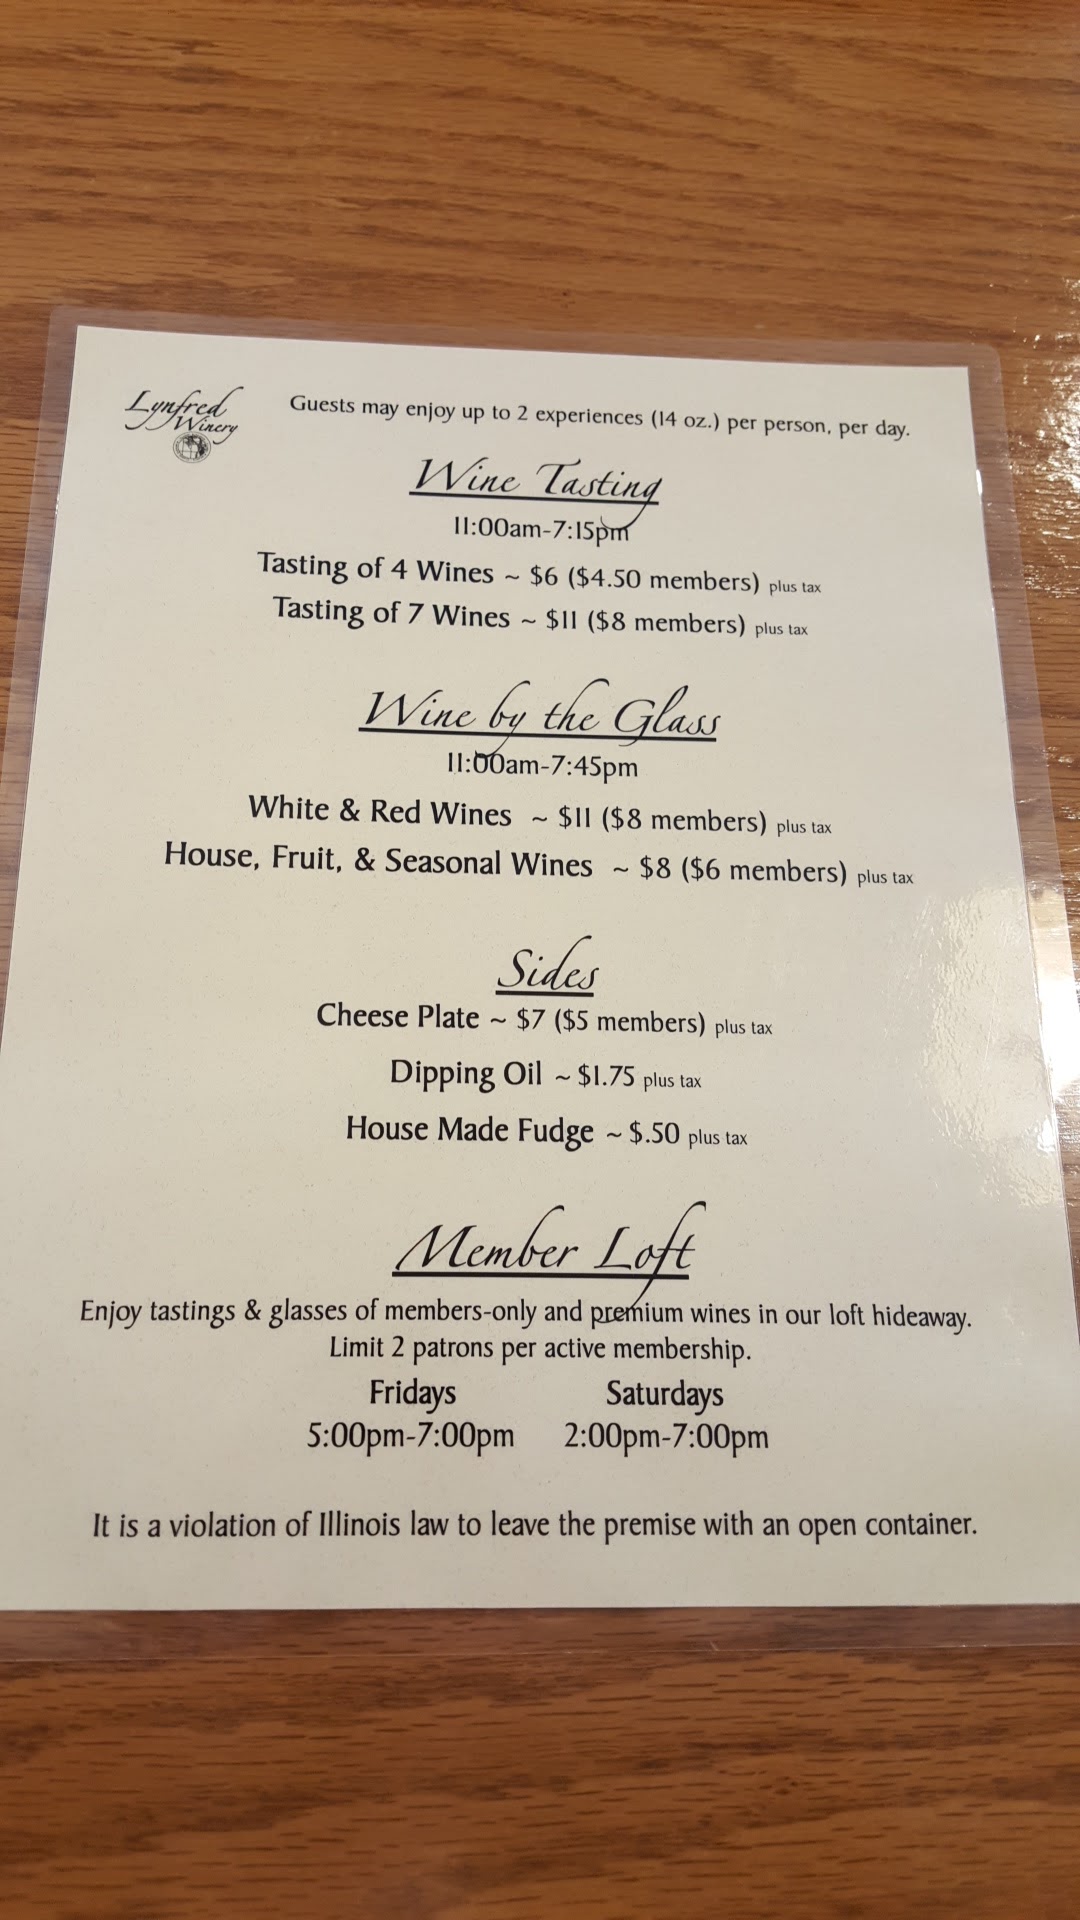 Lynfred
Winery
Guests may enjoy up to 2 experiences (14 oz.) per person, per day.
Wine Tasting
11:00am-7:15pm
Tasting of 4 Wines ~ $6 ($4.50 members) plus tax
Tasting of 7 Wines ~ $11 ($8 members) plus tax
Wine by the Glass
11:00am-7:45pm
White & Red Wines ~ $11 ($8 members) plus tax
House, Fruit, & Seasonal Wines ~ $8 ($6 members) plus tax
Sides
Cheese Plate ~ $7 ($5 members) plus tax
Dipping Oil ~ $1.75 plus tax
House Made Fudge ~ $.50 plus tax
Member Loft
Enjoy tastings & glasses of members-only and premium wines in our loft hideaway.
Limit 2 patrons per active membership.
Fridays Saturdays
5:00pm-7:00pm 2:00pm-7:00pm
It is a violation of Illinois law to leave the premise with an open container.